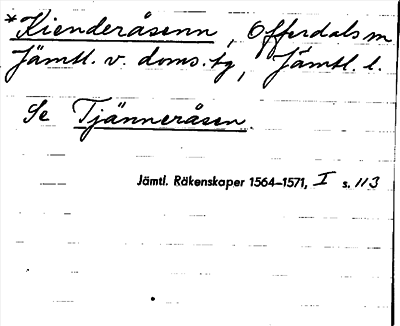 *Kienderåsenn, Offerdals sn
Jämtl. v. doms. tg, Jämtl. l.
Se Tjänneråsen.
Jämtl. Räkenskaper 1564–1571, I s. 113